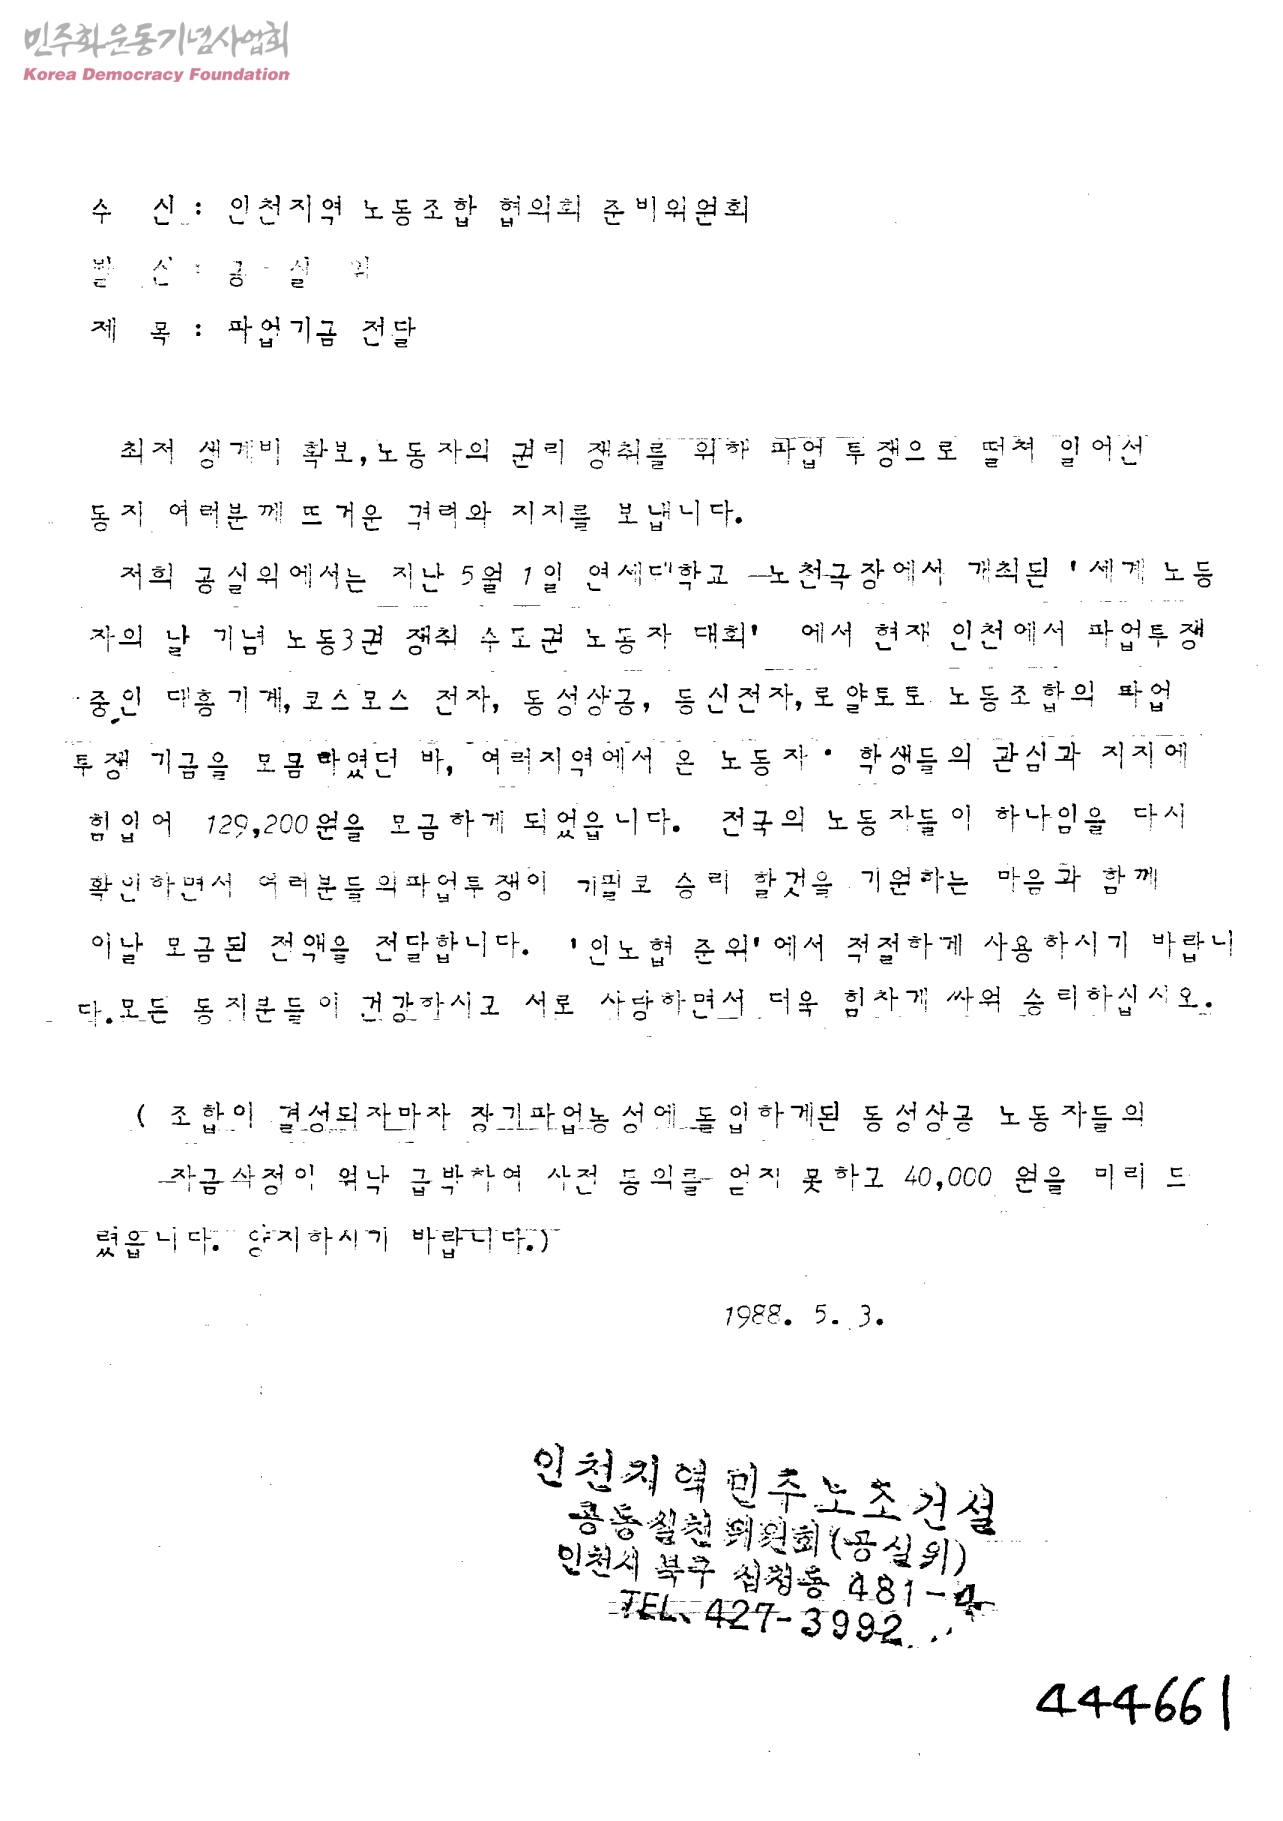 민주화운동기념사업회
Korea Democracy Foundation
수 신 : 인천지역 노동조합 협의회 준비위원회
발 신 : 공 실 위
제 목 : 파업기금 전달
최저 생계비 확보,노동자의 권리 쟁취를 위해 파업 투쟁으로 떨쳐 일어선
동지 여러분께 뜨거운 격려와 지지를 보냅니다.
저희 공실위에서는 지난 5월 1일 연세대학교 노천극장에서 개최된 '세계 노동
자의 날 기념 노동3권 쟁취 수도권 노동자 대회' 에서 현재 인천에서 파업투쟁
중인 대흥기계,코스모스 전자, 동성상공, 등신전자,로얄토토 노동조합의 파업
투쟁 기금을 모금하였던 바, 여러지역에서 온 노동자 · 학생들의 관심과 지지에
힘입어 129,200원을 모금하게 되었읍니다. 전국의 노동자들이 하나임을 다시
확인하면서 여러분들의파업투쟁이 기필코 승리 할것을 기원하는 마음과 함께
이날 모금된 전액을 전달합니다. '인노협 준위'에서 적절하게 사용하시기 바랍니
다.모든 동지분들이 건강하시고 서로 사랑하면서 더욱 힘차게 싸워 승리하십시오.
( 조합이 결성되자마자 장기파업농성에 돌입하게된 동성상공 노동자들의
자금사정이 워낙 급박하여 사전 동의를 얻지 못하고 40,000 원을 미리 드
렸읍니다. 양지하시기 바랍니다.)
1988. 5. 3.
인천지역민주노조건설
공동실천위원회(공실위)
인천시 북구 십정동 481-4
TEL. 427-3992
444661